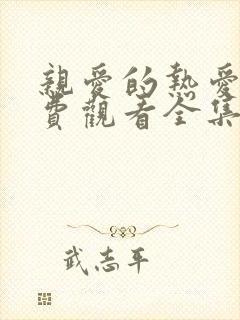 親愛的熱愛
費觀看全集
武志平